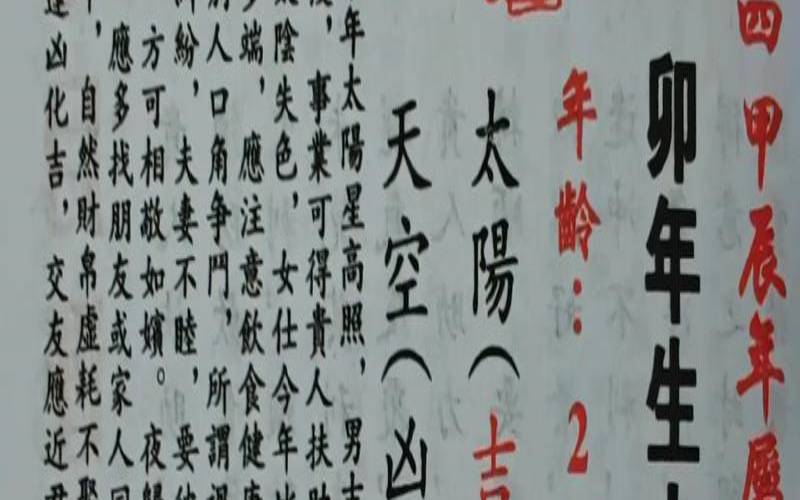 四甲辰年屬
卯年生
年齡：2
太陽（吉
天空（凶
年太陽星高照，男
，事業可得貴人扶助
陰失色，女仕今年
端，應注意飲食健康
人口角爭鬥，所謂
紛，夫妻不睦，要
方可相敬如嬪。夜歸
應多找朋友或家人回
，自然財帛虛耗不聚
凶化吉，交友應近君